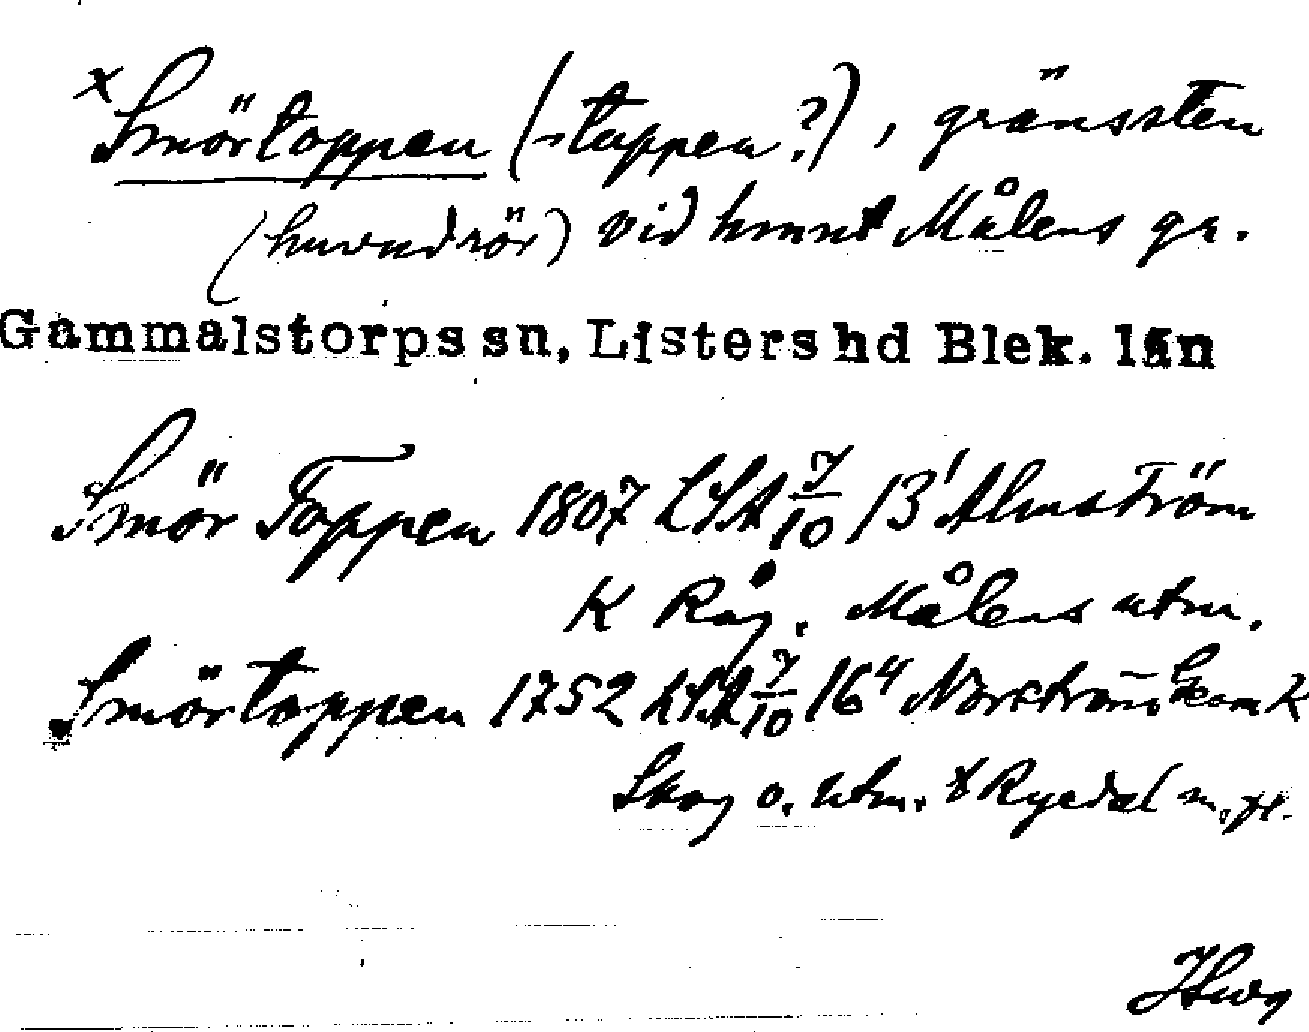 x Smörtoppen (-tappen?), gränssten
(huvudrör) vid hmnt Målens ga.
Gammalstorps sn, Listers hd Blek. län
Smör Toppen 1807 LSA 7/10 13' Almström
K Råg. Målens utm.
Smörtoppen 1752 LSA 7/10 16 4 Norström Geom K
Skog o. utm. t Ryedal m. fl.